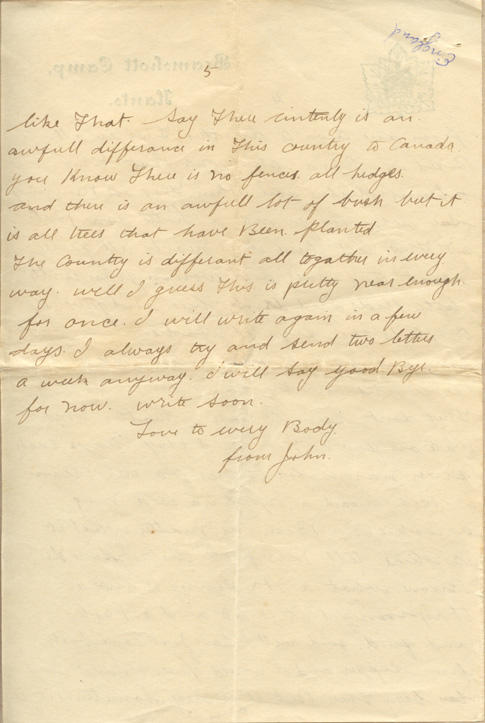 England
5
like That. Say There cintenly is an
awfull differance in This country to Canada
you Know There is no fences all hedges.
and there is an awfull lot of bush but it
is all trees that have Been planted
The Country is differant all togather in every
way. well I guess This is pretty near enough
for once. I will write again in a few
days. I always try and send two letters
a week anyway. I will Say good Bye.
for now. write soon.
Love to every Body
from John.